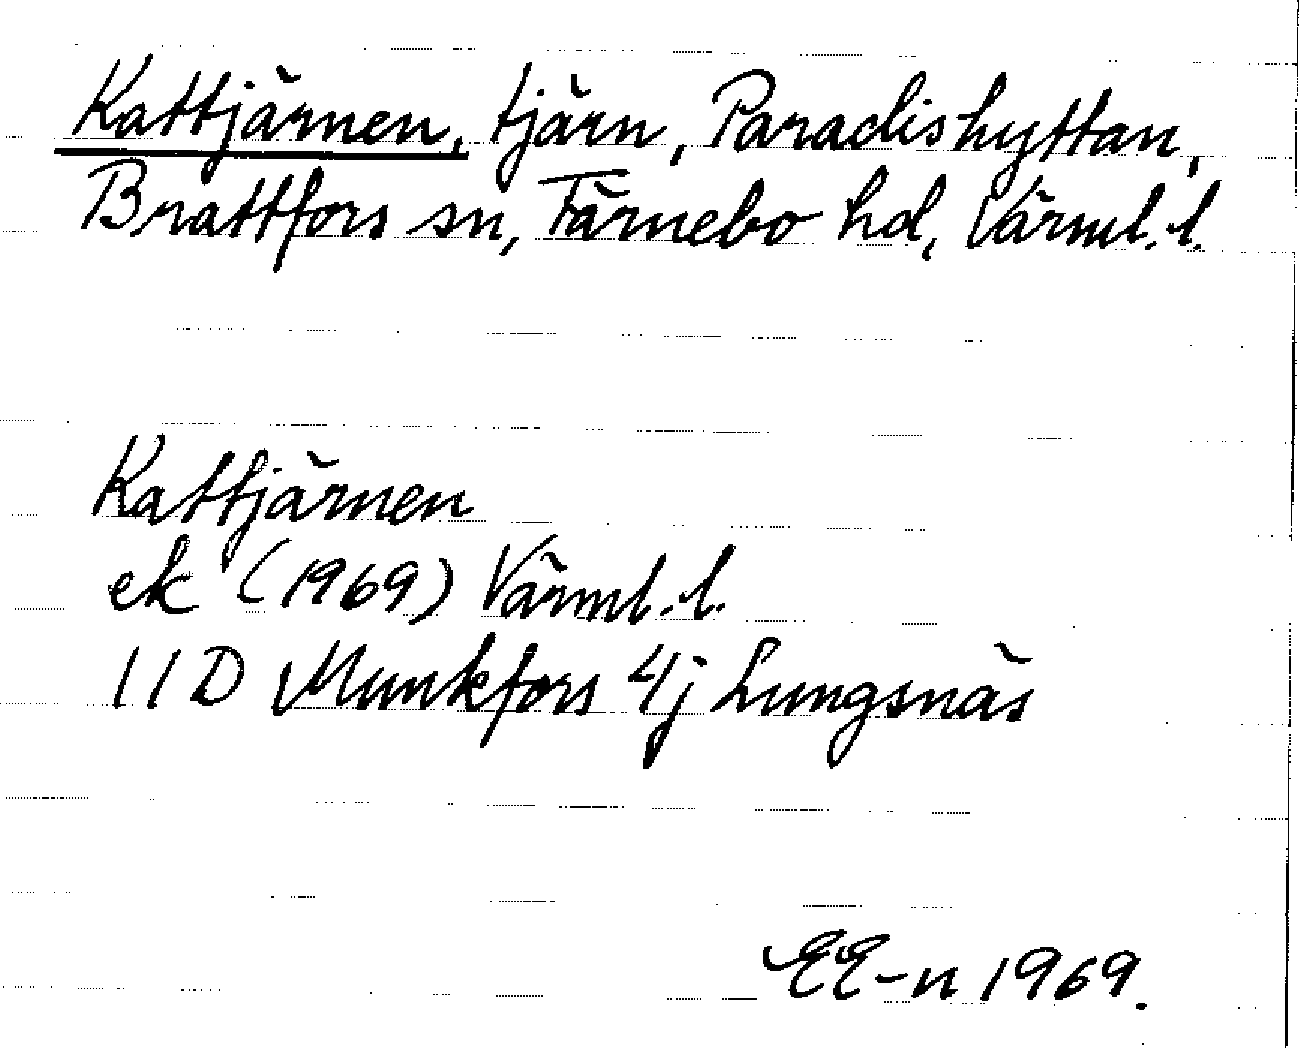 Kattjärnen, tjärn, Paradishyttan,
Brattfors sn, Färnebo hd, Värml. l.
Kattjärnen
ek (1969) Värml. l.
11D Munkfors 4j Lungsnäs
EE-n 1969.